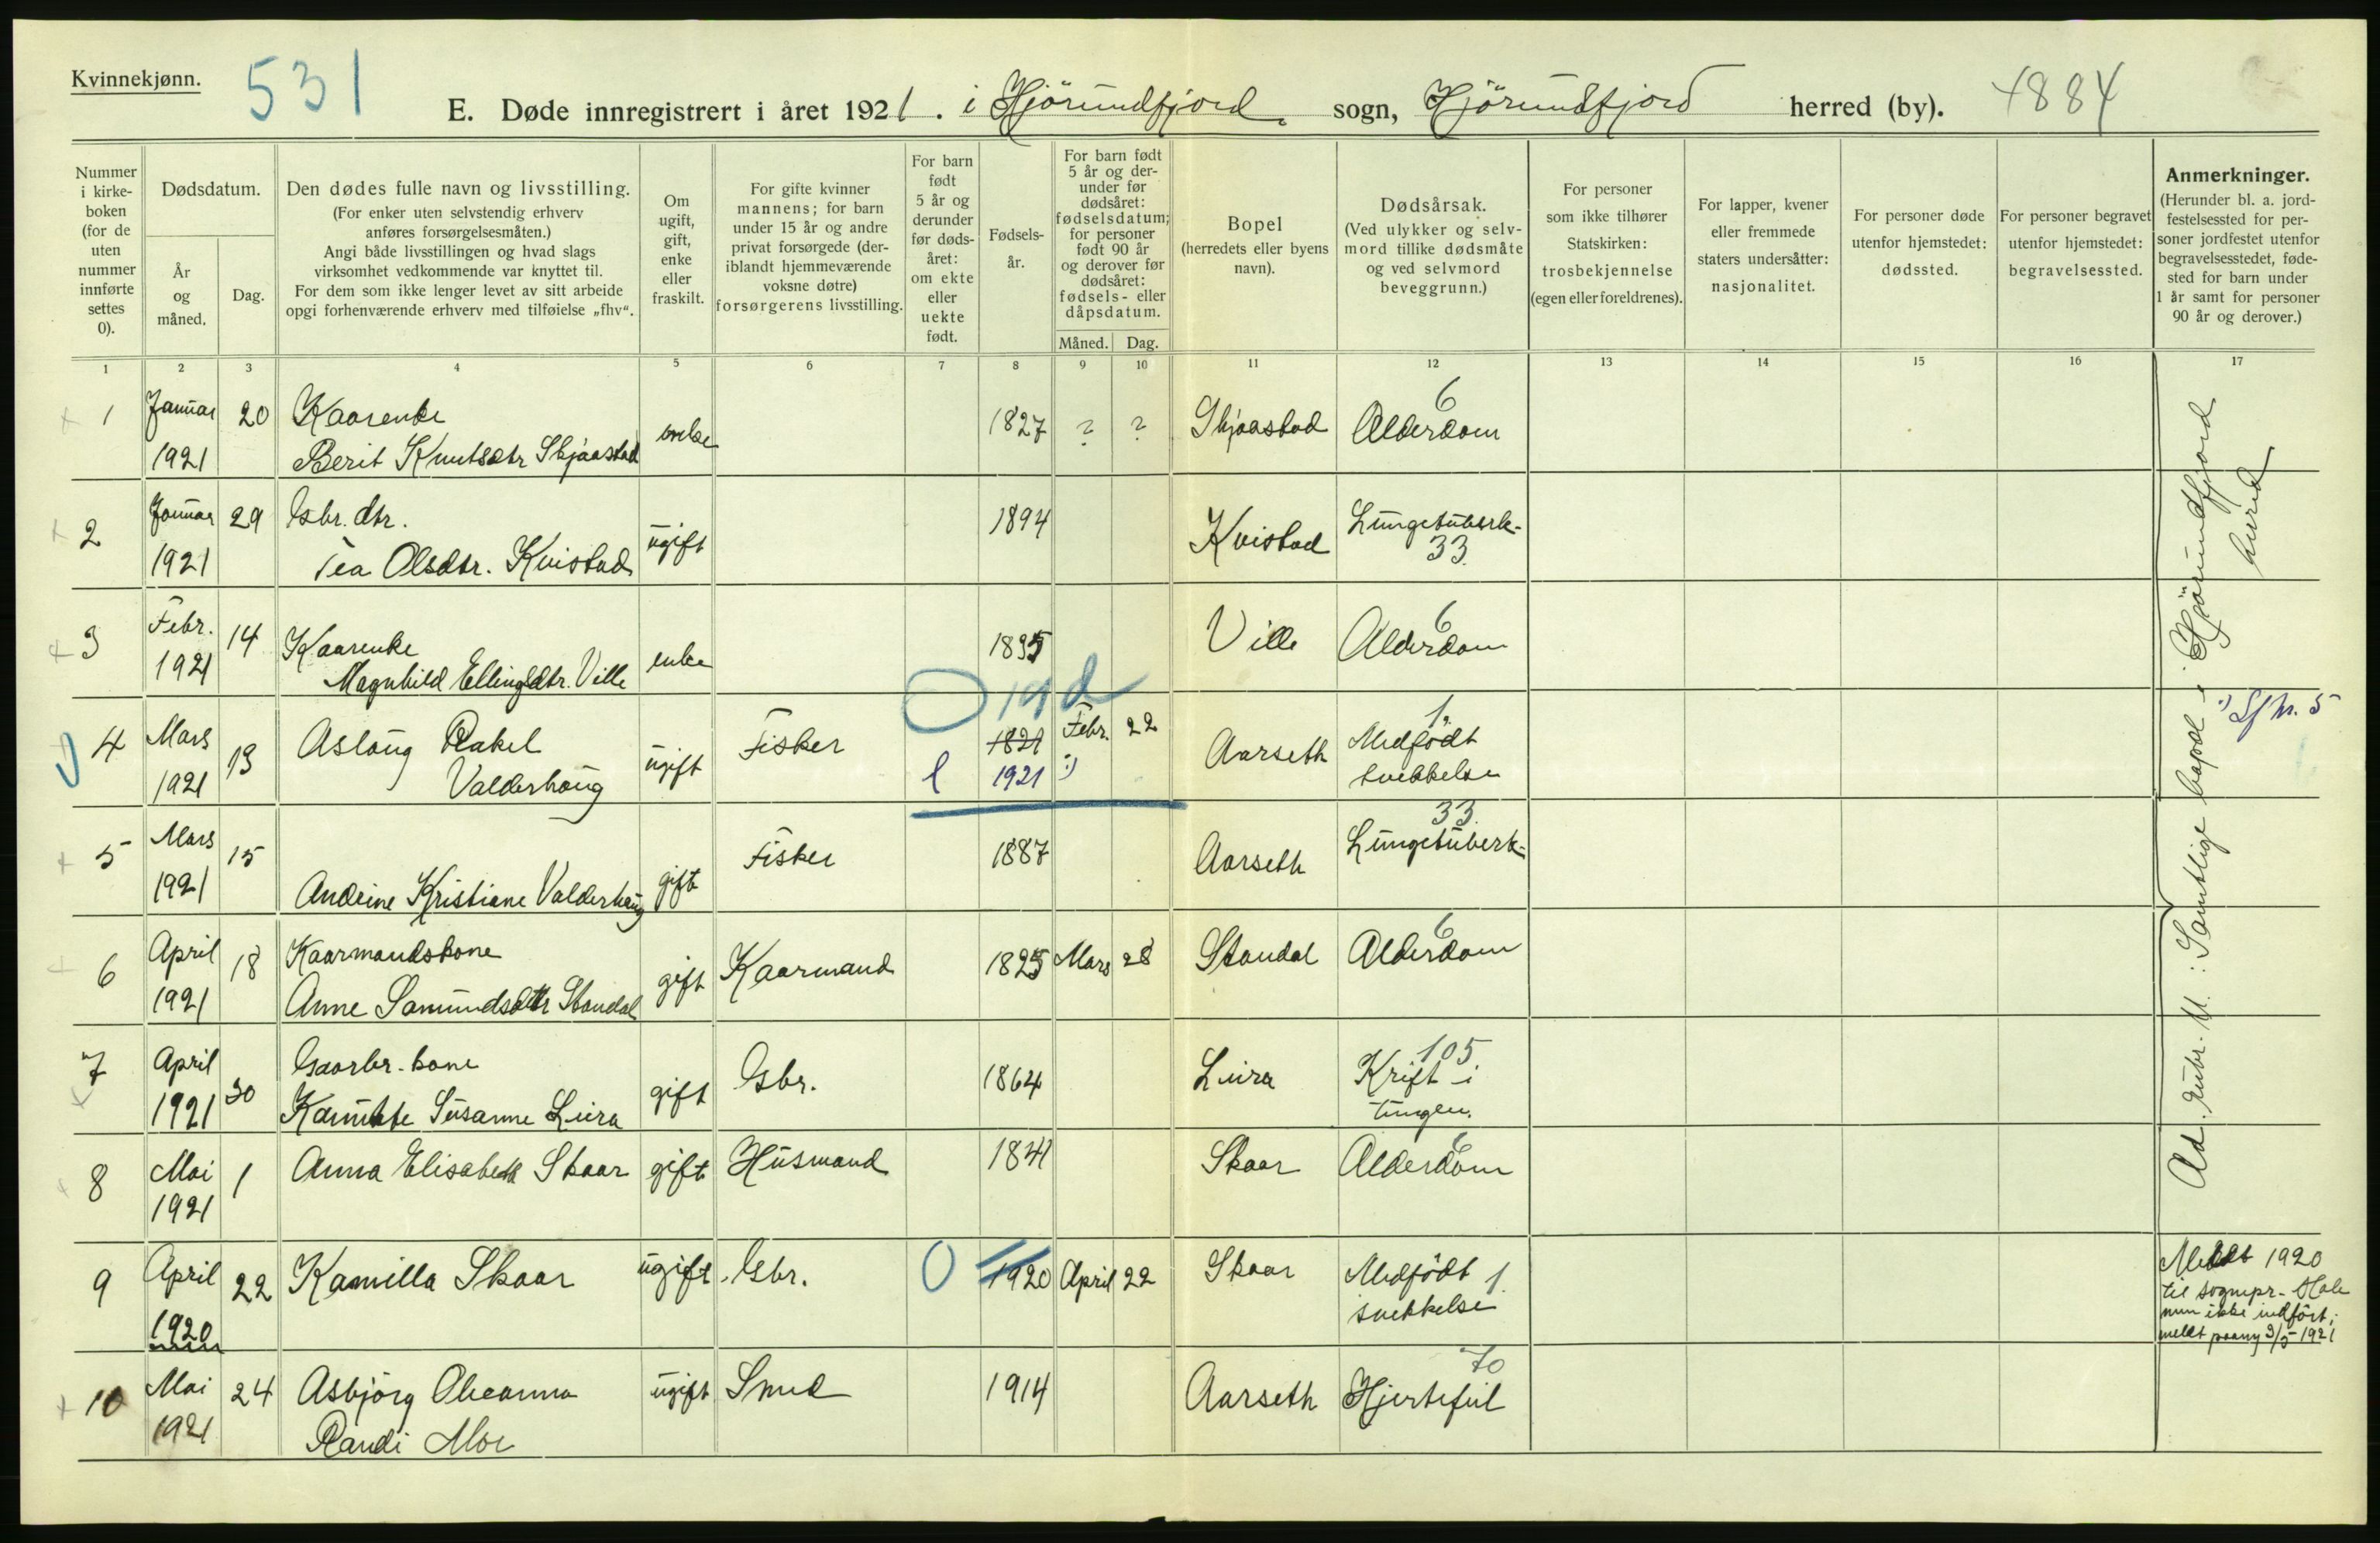 Kvinnekjønn.
531
E. Døde innregistrert i året 1921. i Hjörundfjord sogn, Hjörundfjord herred (by). 1884
Nummer i kirke-boken (for de uten nummer innførte settes 0).
Dødsdatum.
År og måned.
Dag.
Den dødes fulle navn og livsstilling.
(For enker uten selvstendig erhverv
anføres forsørgelsesmåten.)
Angi både livsstillingen og hvad slags
virksomhet vedkommende var knyttet til.
For dem som ikke lenger levet av sitt arbeide
opgi forhenværende erhverv med tilføielse „fhv“.
Om ugift, gift, enke eller fraskilt.
For gifte kvinner
mannens; for barn
under 15 år og andre
privat forsørgede (der-
iblandt hjemmeværende
voksne døtre)
forsørgerens livsstilling.
For barn født 5 år og derunder før døds-året: om ekte eller uekte født.
Fødsels-år.
For barn født
5 år og der-
under før
dødsåret:
fødselsdatum;
for personer
født 90 år
og derover før
dødsåret:
fødsels- eller
dåpsdatum.
Måned. Dag.
Bopel
(herredets eller byens
navn).
Dødsårsak.
(Ved ulykker og selv-
mord tillike dødsmåte
og ved selvmord
beveggrunn.)
For personer
som ikke tilhører
Statskirken:
trosbekjennelse
(egen eller foreldrenes).
For lapper, kvener
eller fremmede
staters undersåtter:
nasjonalitet.
For personer døde
utenfor hjemstedet:
dødssted.
For personer begravet
utenfor hjemstedet:
begravelsessted.
Anmerkninger.
(Herunder bl. a. jord-
festelsessted for per-
soner jordfestet utenfor
begravelsesstedet, føde-
sted for barn under
1 år samt for personer
90 år og derover.)
1 2 3 4 5 6 7 8 9 10 11 12 13 14 15 16 17
1 Januar 1921 20 Kaarenke
Berit Knutsdtr Skjaastad enke 1827 ? ? Skjaastad Alderdom 6
2 Januar 1921 29 Gbr. dtr.
Tea Olsdtr. Kvistad ugift 1894 Kvistad Lungetuberk- 33.
3 Febr. 1921 14 Kaarenke
Magnhild Ellingsdtr. Ville enke 1835 Ville Alderdom 6
4 Mars 1921 13 Aslaug Rakel
Valderhaug ugift Fisker 19 d 1821 1921 :) Febr. 22 Aarseth Medfödt
svekkelse 1. :) Sf nr. 5
5 Mars 1921 15
Andrine Kristiane Valderhaug gift Fisker 1887 Aarseth Lungetuberk- 33.
6 April 1921 18 Kaarmandskone
Anne Samundsdtr Standal gift Kaarmand 1825 Mars 28 Standal Alderdom 6
7 April 1921 30 Gaarbr.-kone
Susanne Liira gift Gbr. 1864 Liira Kräft i
tungen. 105
8 Mai 1921 1 Anna Elisabeth Skaar gift Husmand 1841 Skaar Alderdom 6
9 April 1920 22 Kamilla Skaar ugift Gbr. 0 1920 April 22 Skaar Medfödt
svekkelse 1 Meldt 1920
til sognepr. Hole
men ikke indført;
meldt paany 3/5 1921
10 Mai 1921 24 Asbjörg Oleanna
Randi Moe ugift Smed 1914 Aarseth Hjertefeil 70
Ad. rubr. 11. : Samtlige bopel i Hjörundfjord
herred